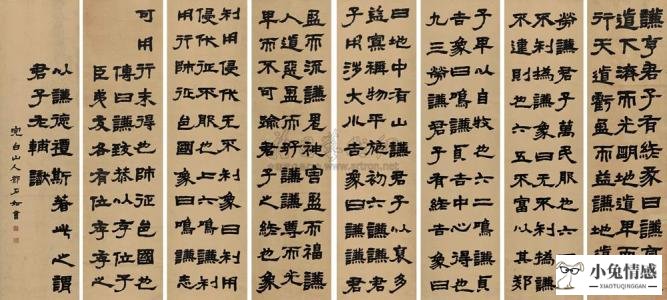 謙亨君子有終彖曰謙亨天
道下濟而光明地道卑而上
行天道虧盈而益謙地道變
勞謙君子萬民服也六四无
不利撝謙象曰无不利撝謙
不違則也六五不富以其鄰
子卑以自牧也六二鳴謙貞
吉象曰鳴謙貞吉中心得也
九三勞謙君子有終吉象曰
曰地中有山謙君子以裒多
益寡稱物平施初六謙謙君
子用涉大川吉象曰謙謙君
盈而流謙鬼神害盈而福謙
人道惡盈而好謙謙尊而光
卑而不可踰君子之終也象
利用侵伐无不利象曰利用
侵伐征不服也上六鳴謙利
用行師征邑國象曰鳴謙志
未得也可用行師征邑國也
傳曰謙致恭以存位子
臣各有位
以謙德禮斯著此之謂
君子光輔識
完白山人鄧石如書
小兔情感
XIAOTUQINGGAN